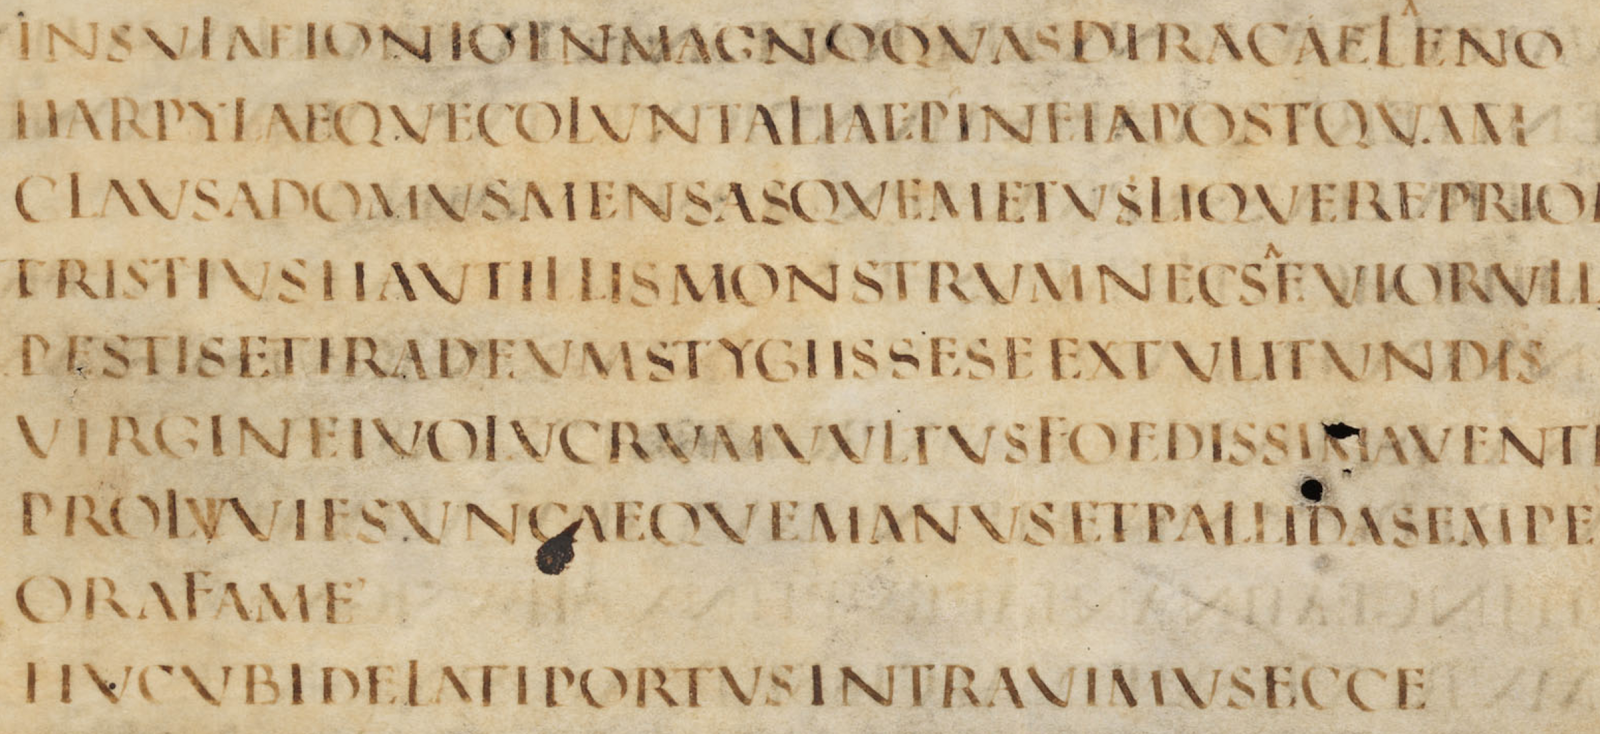 INSVLAEIONIOINMAGNOQVASDIRACAELENO
HARPYIAEQVECOLVNTALIAEPINEIAPOSTQVAM
CLAVSADOMVSMENSASQVEMETVSLIQVEREPRIOR
TRISTIVSHAVTILLISMONSTRVMNECSEVIORVLL
PESTISETIRADEVMSTYGIISSESEEXTVLITVNDIS
VIRGINEIVOLVCRVMVVLTVSFOEDISSIMAVENTR
PROLVVIESVNCAEQVEMANVSETPALLIDASEMPE
ORAFAME
HVCVBIDELATIPORTVSINTRAVIMVSECCE